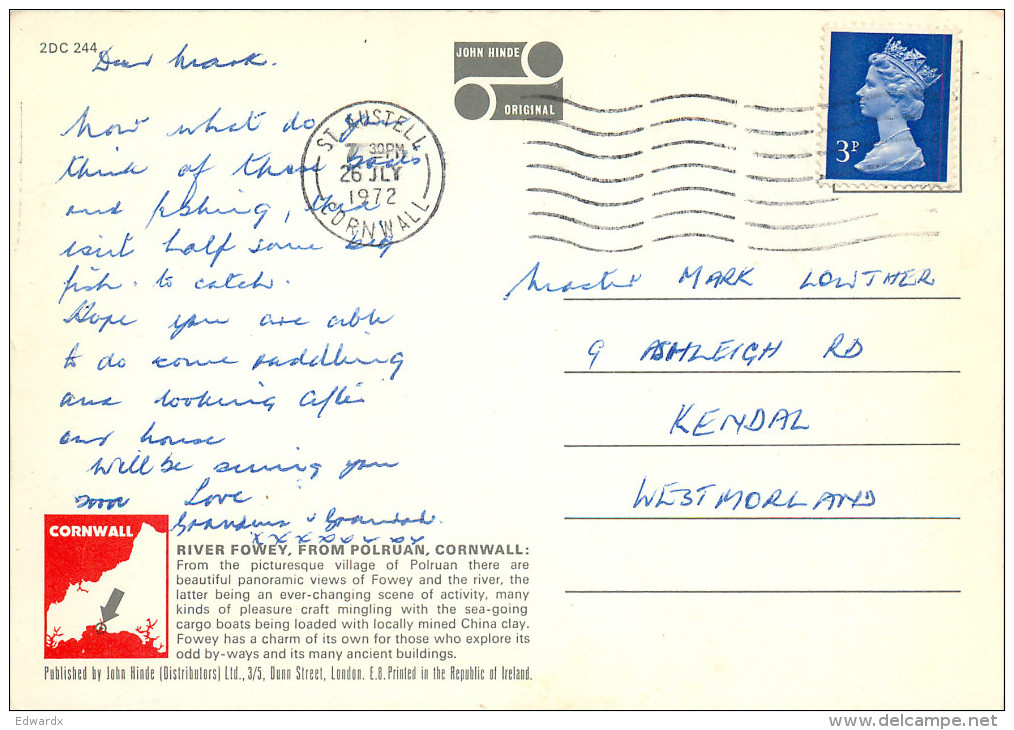 2DC 244
Dear Mark.
Now what do you
think of these boats
and fishing, there
isnt half some big
fish. to catch.
Hope you are able
to do some paddling
and looking after
our house
Will be seeing you
soon Love
Grandma & Grandad.
xxxxxxxx
JOHN HINDE
ORIGINAL
ST. AUSTELL
7 30PM
26 JLY
1972
CORNWALL
3P
Master MARK LOWTHER
9 ASHLEIGH RD
KENDAL
WESTMORLAND
CORNWALL
RIVER FOWEY, FROM POLRUAN, CORNWALL:
From the picturesque village of Polruan there are
beautiful panoramic views of Fowey and the river, the
latter being an ever-changing scene of activity, many
kinds of pleasure craft mingling with the sea-going
cargo boats being loaded with locally mined China clay.
Fowey has a charm of its own for those who explore its
odd by-ways and its many ancient buildings.
Published by John Hinde (Distributors) Ltd., 3/5, Dunn Street, London. E.8. Printed in the Republic of Ireland.
Edwardx
www.delcampe.net